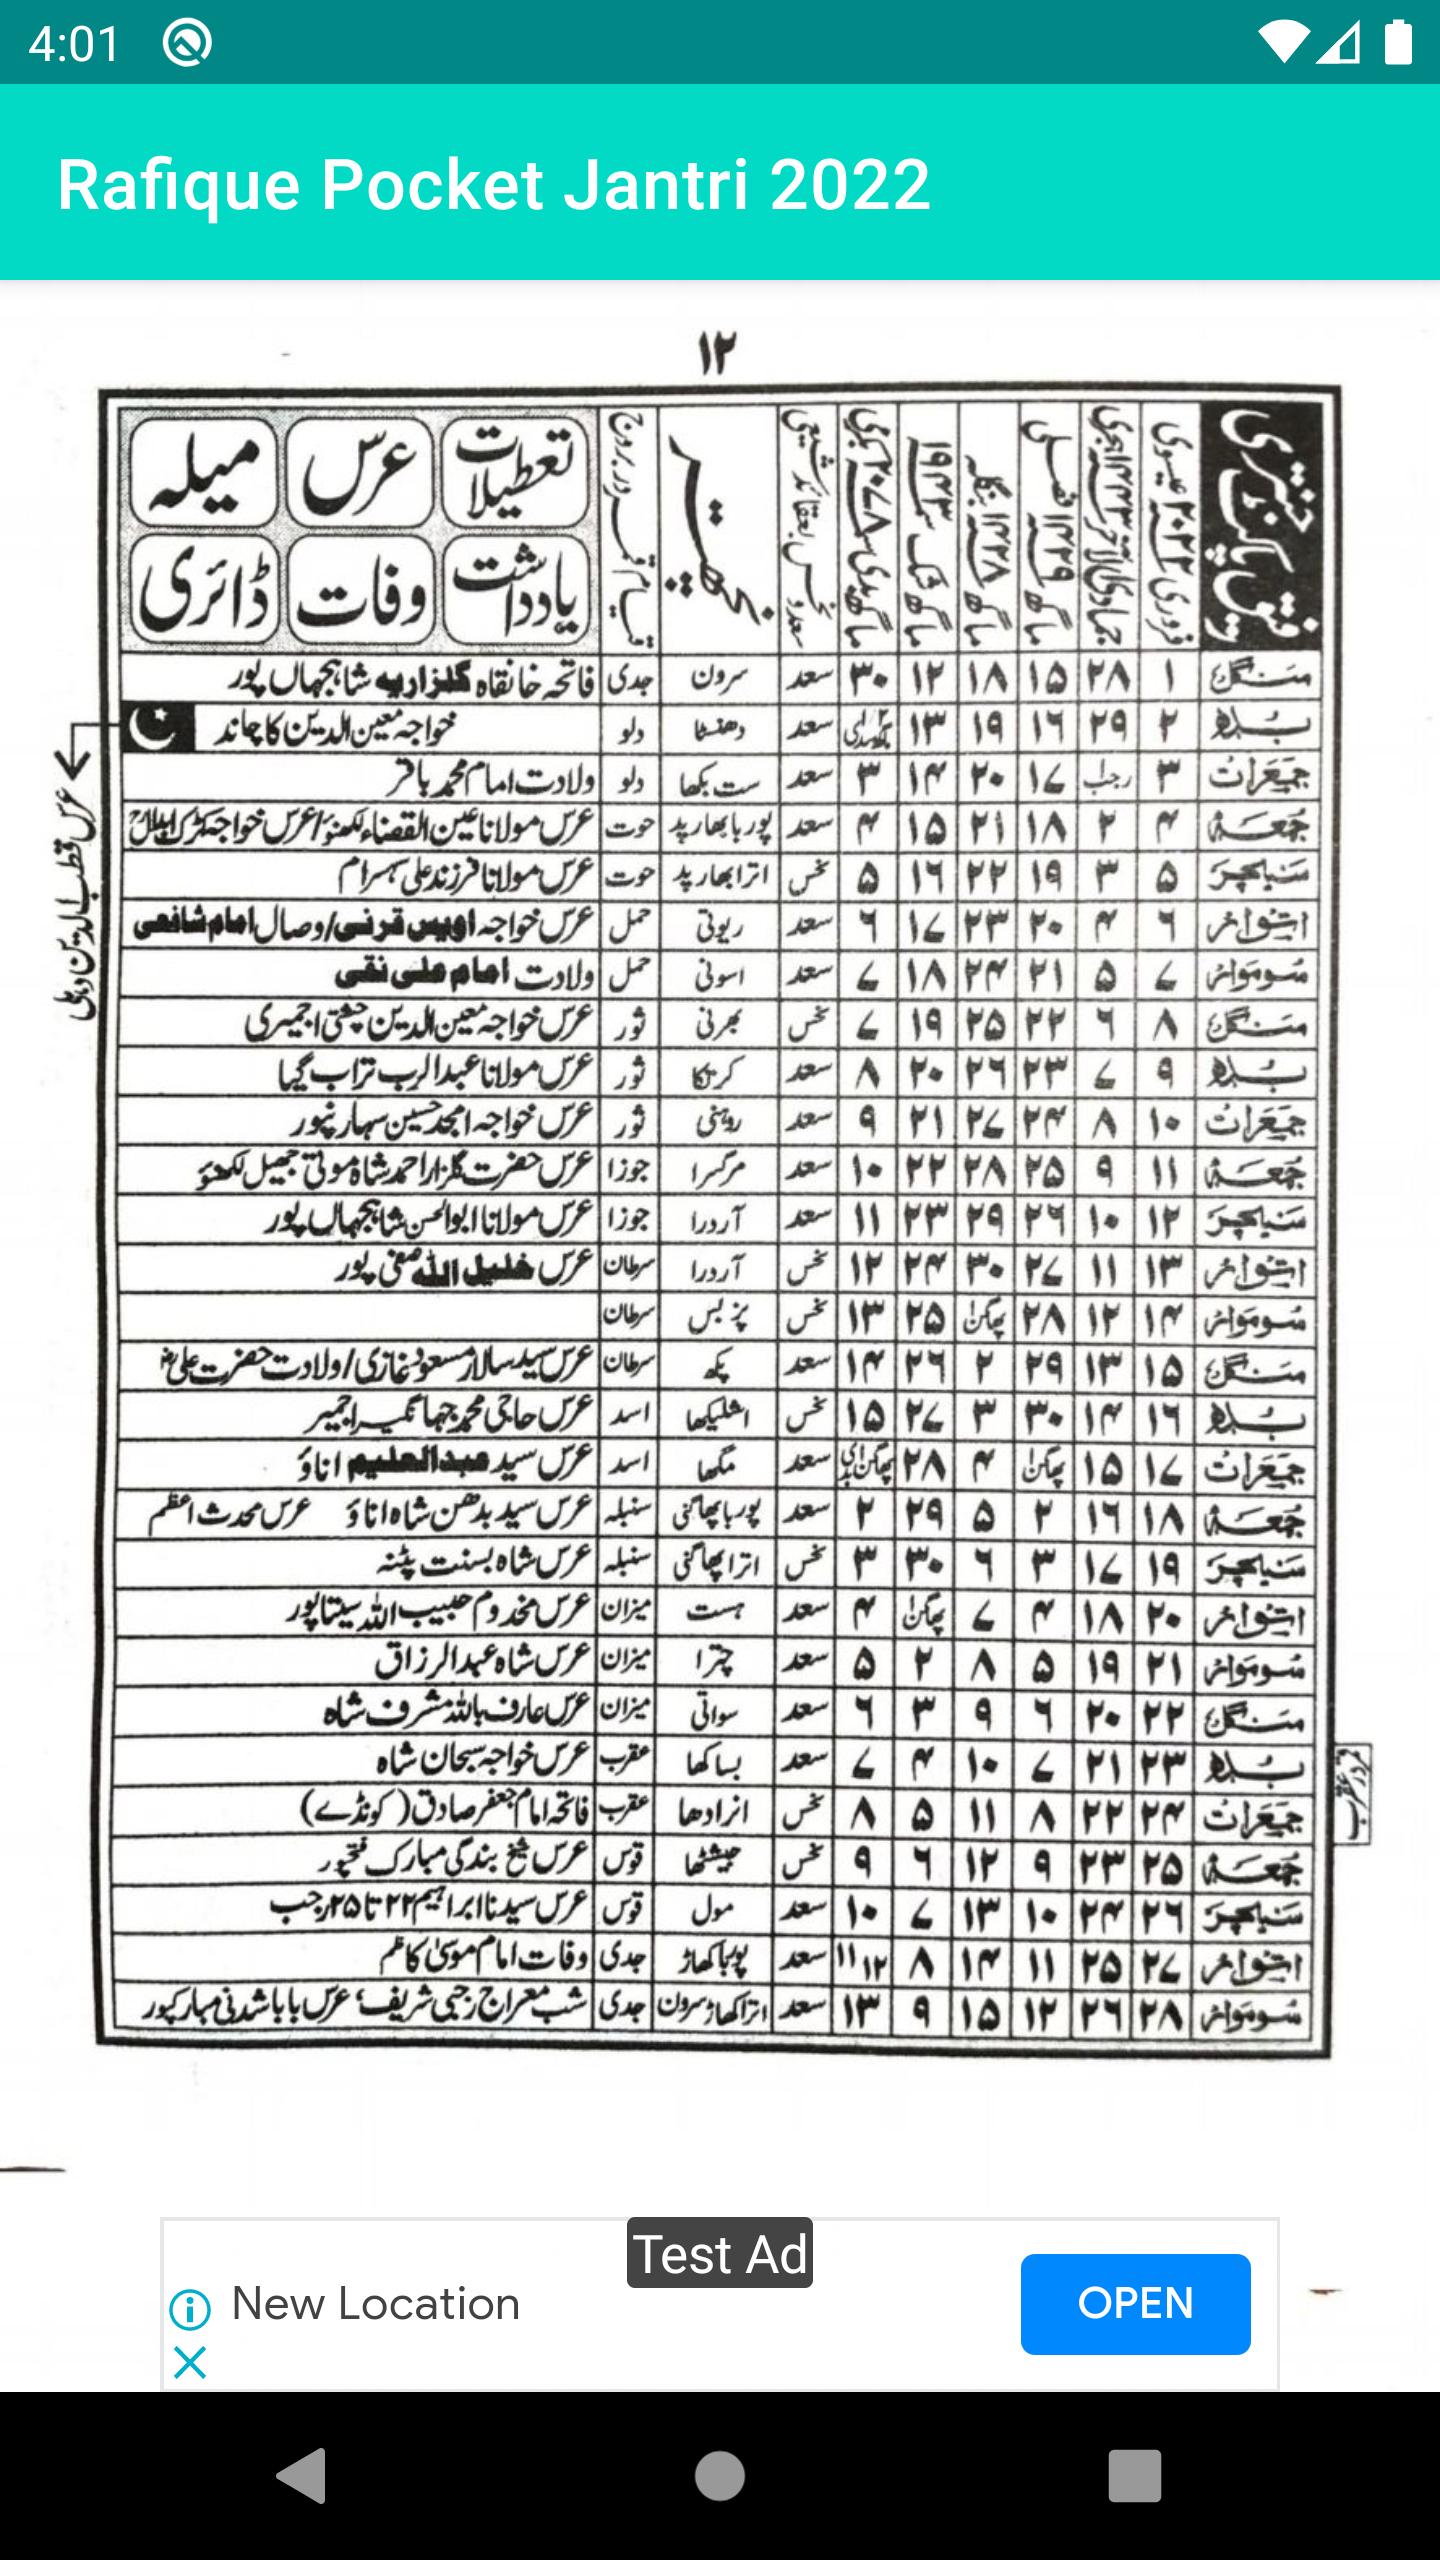 4:01
Rafique Pocket Jantri 2022
۱۲
رفیق پاکٹ جنتری فروری ۲۰۲۲ عیسوی جمادی الآخر ۱۴۴۳ ہجری ماگھ ۱۴۲۹ فصلی ماگھ ۱۴۲۸ بنگلہ ماگھ شک ۱۹۴۳ ماگھ بدی ۲۰۷۸ بکرمی سعد و نحس بعقائد شیعی نچھتر قیام قمر در بروج
تعطیلات عرس میلہ
یادداشت وفات ڈائری
منگل ۱ ۲۸ ۱۵ ۱۸ ۱۲ ۳۰ سعد سرون جدی فاتحہ خانقاہ گلزاریہ شاہجہاں پور
بدھ ۲ ۲۹ ۱۶ ۱۹ ۱۳ سعد دھنسٹا دلو خواجہ معین الدین کا چاند
جمعرات ۳ رجب۱ ۱۷ ۲۰ ۱۴ ۳ سعد ست بکھا دلو ولادت امام محمد باقر
جمعہ ۴ ۲ ۱۸ ۲۱ ۱۵ ۴ سعد پوربابھارپد حوت عرس مولانا عین القضاء لکھنؤ/عرس خواجہ
سنیچر ۵ ۳ ۱۹ ۲۲ ۱۶ ۵ نحس اترابھارپد حوت عرس مولانا فرزند علی سہسرام
اتوار ۶ ۴ ۲۰ ۲۳ ۱۷ ۶ سعد ریوتی حمل عرس خواجہ اویس قرنی/وصال امام شافعی
سوموار ۷ ۵ ۲۱ ۲۴ ۱۸ ۷ سعد اسونی حمل ولادت امام علی نقی
منگل ۸ ۶ ۲۲ ۲۵ ۱۹ ۷ نحس بھرنی ثور عرس خواجہ معین الدین چشتی اجمیری
بدھ ۹ ۷ ۲۳ ۲۶ ۲۰ ۸ سعد کرتکا ثور عرس مولانا عبدالرب تراب گیا
جمعرات ۱۰ ۸ ۲۴ ۲۷ ۲۱ ۹ سعد روہنی ثور عرس خواجہ امجد حسین سہارنپور
جمعہ ۱۱ ۹ ۲۵ ۲۸ ۲۲ ۱۰ سعد مرگسرا جوزا عرس حضرت گلزار احمد شاہ موتی جھیل لکھنؤ
سنیچر ۱۲ ۱۰ ۲۶ ۲۹ ۲۳ ۱۱ سعد آردرا جوزا عرس مولانا ابوالحسن شاہجہاں پور
اتوار ۱۳ ۱۱ ۲۷ ۳۰ ۲۴ ۱۲ نحس آردرا سرطان عرس خلیل اللہ صفی پور
سوموار ۱۴ ۱۲ ۲۸ پھاگن۱ ۲۵ ۱۳ نحس پزبس سرطان
منگل ۱۵ ۱۳ ۲۹ ۲ ۲۶ ۱۴ سعد پکھ سرطان عرس سید سالار مسعود غازی/ولادت حضرت علیؓ
بدھ ۱۶ ۱۴ ۳۰ ۳ ۲۷ ۱۵ نحس اشلیکھا اسد عرس حاجی محمد جہانگیر اجمیر
جمعرات ۱۷ ۱۵ پھاگن۱ ۴ ۲۸ پھاگن بدی۱ سعد مگھا اسد عرس سید عبدالعلیم اناؤ
جمعہ ۱۸ ۱۶ ۲ ۵ ۲۹ ۲ سعد پورباپھاگنی سنبلہ عرس سید بدھن شاہ اناؤ عرس محدث اعظم
سنیچر ۱۹ ۱۷ ۳ ۶ ۳۰ ۳ نحس اتراپھاگنی سنبلہ عرس شاہ بسنت پٹنہ
اتوار ۲۰ ۱۸ ۴ ۷ پھاگن۱ ۴ سعد ہست میزان عرس مخدوم حبیب اللہ سیتاپور
سوموار ۲۱ ۱۹ ۵ ۸ ۲ ۵ سعد چترا میزان عرس شاہ عبدالرزاق
منگل ۲۲ ۲۰ ۶ ۹ ۳ ۶ سعد سواتی میزان عرس عارف باللہ مشرف شاہ
بدھ ۲۳ ۲۱ ۷ ۱۰ ۴ ۷ سعد بساکھا عقرب عرس خواجہ سبحان شاہ
جمعرات ۲۴ ۲۲ ۸ ۱۱ ۵ ۸ نحس انرادھا عقرب فاتحہ امام جعفر صادق (کونڈے)
جمعہ ۲۵ ۲۳ ۹ ۱۲ ۶ ۹ نحس جیشٹھا قوس عرس شیخ بندگی مبارک فتحپور
سنیچر ۲۶ ۲۴ ۱۰ ۱۳ ۷ ۱۰ سعد مول قوس عرس سیدنا ابراہیم ۲۲ تا ۲۵ رجب
اتوار ۲۷ ۲۵ ۱۱ ۱۴ ۸ ۱۱ ۱۲ سعد پورباکھاڑ جدی وفات امام موسیٰ کاظم
سوموار ۲۸ ۲۶ ۱۲ ۱۵ ۹ ۱۳ سعد اتراکھاڑ سرون جدی شب معراج رجبی شریف، عرس بابا شدنی مبارکپور
عرس قطب الدین دہلی
قمر در عقرب
Test Ad
New Location
OPEN